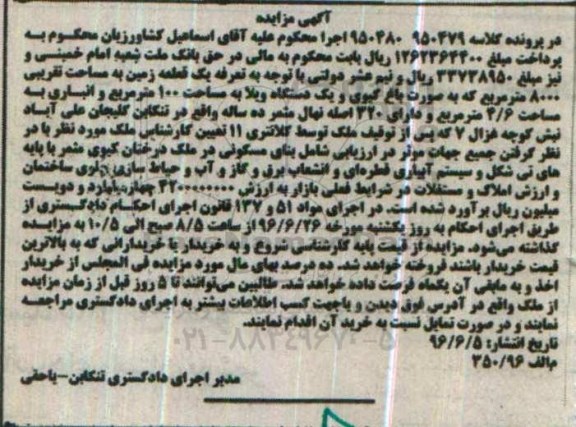 آگهی مزایده
در پرونده کلاسه ۹۵۰۴۷۹ ۹۵۰۴۸۰ اجرا محکوم علیه آقای اسماعیل کشاورزیان محکوم به
پرداخت مبلغ ۱۲۶۲۳۶۴۴۰۰ ریال بابت محکوم به مالی در حق بانک ملت شعبه امام خمینی و
نیز مبلغ ۳۳۷۳۸۹۵۰ ریال و نیم عشر دولتی با توجه به تعرفه یک قطعه زمین به مساحت تقریبی
۸۰۰۰ مترمربع که به صورت باغ کیوی و یک دستگاه ویلا به مساحت ۱۰۰ مترمربع و انباری به
مساحت ۴/۶ مترمربع و دارای ۳۲۰ اصله نهال مثمر ده ساله واقع در تنکابن گلیجان علی آباد
نبش کوچه غزال ۷ که پس از توقیف ملک توسط کلانتری ۱۱ تعیین کارشناس ملک مورد نظر با در
نظر گرفتن جمیع جهات موثر در ارزیابی شامل بنای مسکونی در ملک درختان کیوی مثمر با پایه
های تی شکل و سیستم آبیاری قطره‌ای و انشعاب برق و گاز و آب و حیاط سازی جلوی ساختمان
و ارزش املاک و مستغلات در شرایط فعلی بازار به ارزش ۴۲۰۰۰۰۰۰۰۰ چهارمیلیارد و دویست
میلیون ریال برآورد شده است. در اجرای مواد ۵۱ و ۱۳۷ قانون اجرای احکام دادگستری از
طریق اجرای احکام به روز یکشنبه مورخه ۹۶/۶/۲۶ از ساعت ۸/۵ صبح الی ۱۰/۵ به مزایده
گذاشته می‌شود. مزایده از قیمت پایه کارشناسی شروع و به خریدار یا خریدارانی که به بالاترین
قیمت خریدار باشند فروخته خواهد شد. ده درصد بهای مال مورد مزایده فی المجلس از خریدار
اخذ و به مابقی آن یکماه فرصت داده خواهد شد. طالبین می‌توانند تا ۵ روز قبل از زمان مزایده
از ملک واقع در آدرس فوق دیدن و یا جهت کسب اطلاعات بیشتر به اجرای دادگستری مراجعه
نمایند و در صورت تمایل نسبت به خرید آن اقدام نمایند.
تاریخ انتشار: ۹۶/۶/۵
م الف ۳۵۰/۹۶
مدیر اجرای دادگستری تنکابن-یاحقی
۰۲۱-۸۸۳۴۹۶۷۰-۵